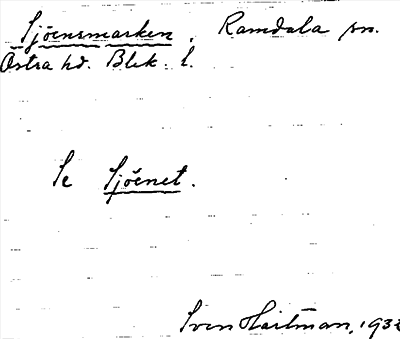 Sjöensmarken, Ramdala sn.
Östra hd. Blek. l.
Se Sjöenet.
Sven Hartman, 1932